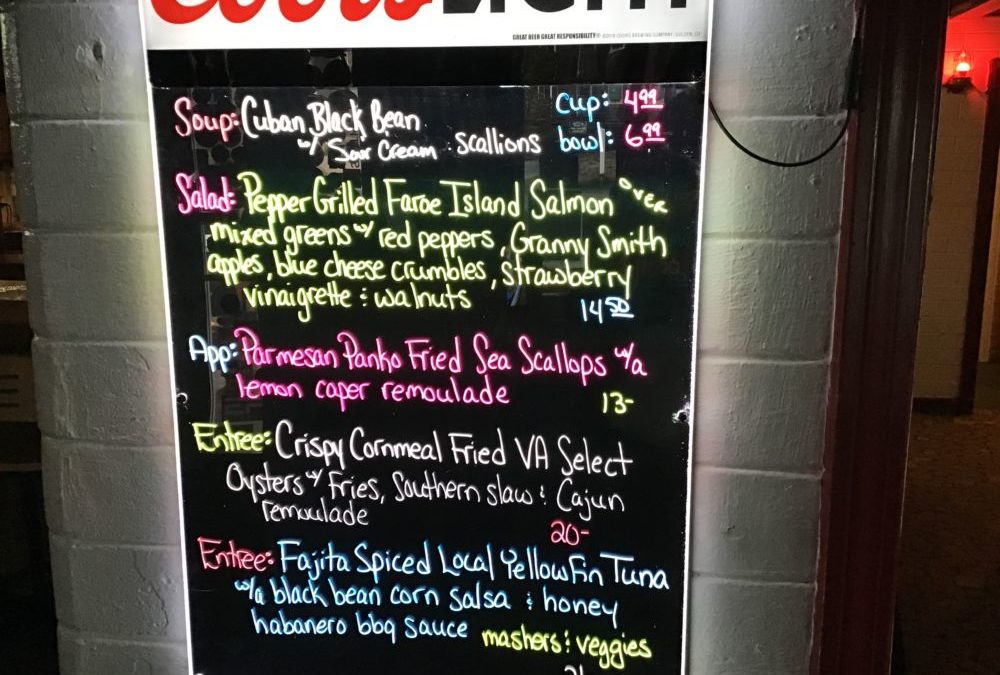 Coors LIGHT
GREAT BEER GREAT RESPONSIBILITY®
Soup: Cuban Black Bean cup: 4.99
w/ Sour Cream · scallions bowl: 6.99
Salad: Pepper Grilled Faroe Island Salmon over
mixed greens w/ red peppers, Granny Smith
apples, blue cheese crumbles, strawberry
vinaigrette & walnuts 14.50
App: Parmesan Panko Fried Sea Scallops w/a
lemon caper remoulade 13-
Entree: Crispy Cornmeal Fried VA Select
Oysters w/ Fries, Southern slaw & Cajun
remoulade
20-
Entree: Fajita Spiced Local Yellowfin Tuna
w/a black bean corn salsa & honey
habanero bbq sauce mashers & veggies